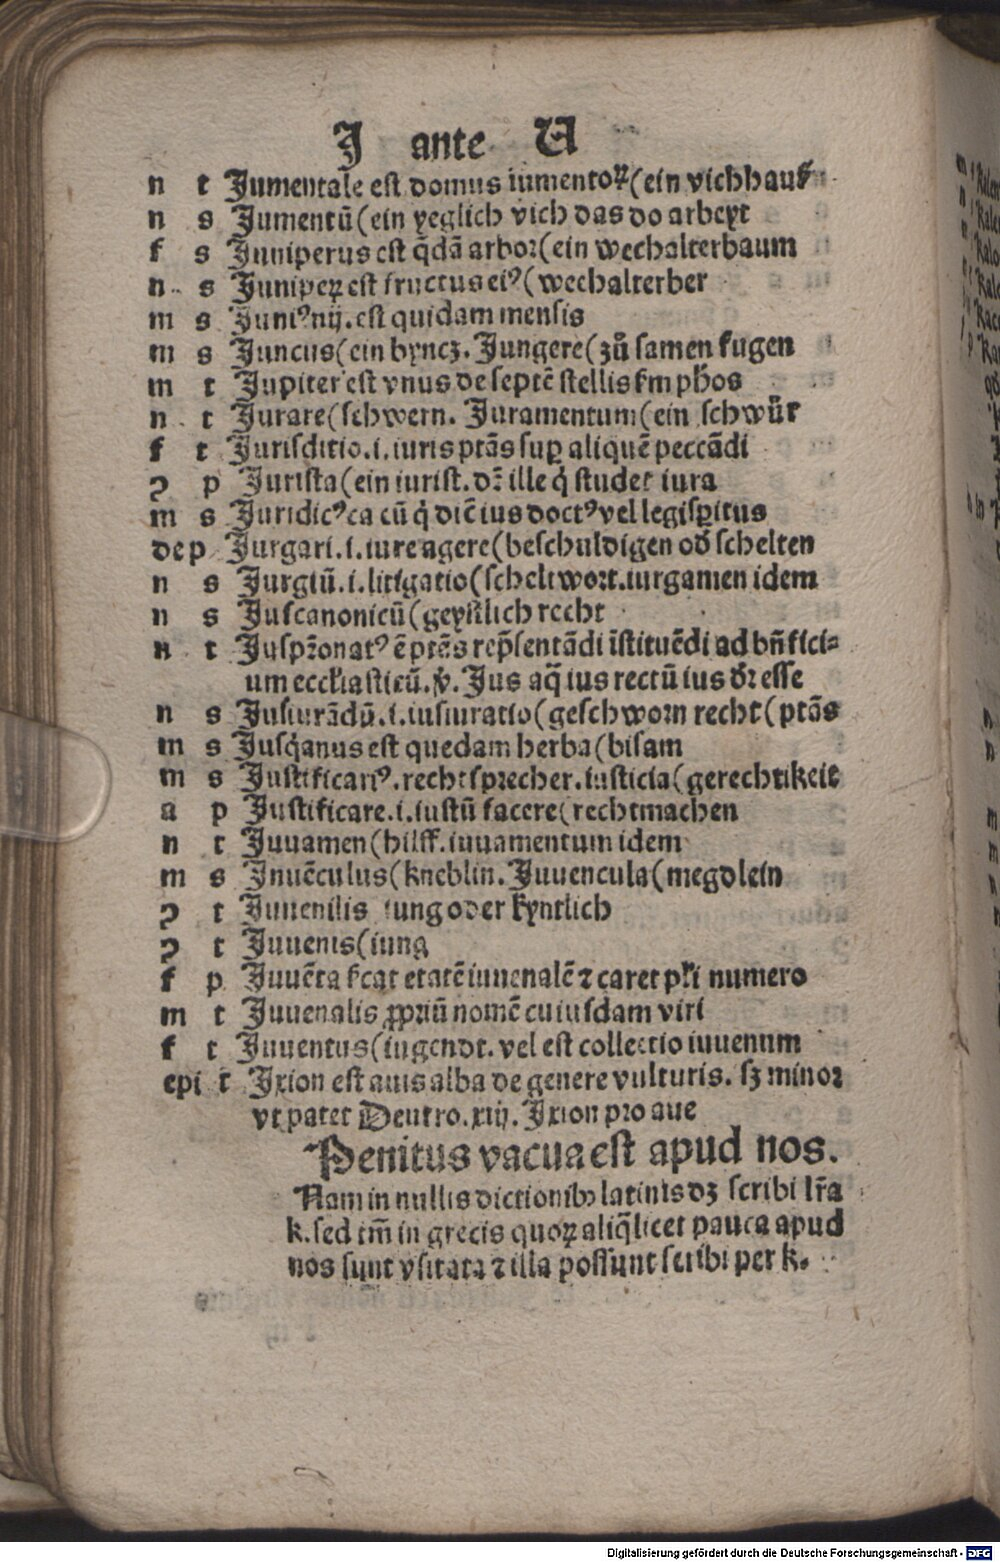 J ante U
n t Jumentale est domus iumentoꝝ (ein vichhauß
n s Jumentū (ein yeglich vich das do arbeyt
f s Juniperus est q̄dā arbor (ein wechalterbaum
n s Juniperꝫ est fructus eiꝰ (wechalterber
m s Juniꝰ nij. est quidam mensis
m s Juncus (ein byncz. Jungere (zů samen fugen
m t Jupiter est vnus de septē stellis ẜm ph̄os
n t Jurare (schwern. Juramentum (ein schwůr
f t Jurisditio .i. iuris ptās suꝑ aliquē peccādi
ꝯ p Jurista (ein iurist. dr̄ ille q̇ studet iura
m s Juridicꝰ ca cū q̇ dic̄ ius doctꝰ vel legisꝑitus
de p Jurgari .i. iure agere (beschuldigen od̄ schelten
n s Jurgiū .i. litigatio (scheltwort. iurgamen idem
n s Juscanonicū (geystlich recht
n t Juspr̄onatꝰ ē ptās rep̄sentādi īstituēdi ad bn̄fici=
um eccłiasticū. ꝟ. Jus aq̄ ius rectū ius dr̄ esse
n s Jusiurādū .i. iusiuratio (geschworn recht (ptās
m s Jusq̇anus est quedam herba (bisam
m s Justificariꝰ. rechtsprecher. iusticia (gerechtikeit
a p Justificare .i. iustū facere (rechtmachen
n t Juuamen (hilff. iuuamentum idem
m s Jnuēculus (kneblin. Juuencula (megdlein
ꝯ t Juuenilis iung oder kyntlich
ꝯ t Juuenis (iung
f p Juuēta ẜcat etatē iuuenalē ⁊ caret płi numero
m t Juuenalis ꝓpriū nomē cuiusdam viri
f t Juuentus (iugendt. vel est collectio iuuenum
epi t Jxion est auis alba de genere vulturis. sꝫ minor
vt patet Deutro. xiij. Jxion pro aue
Penitus vacua est apud nos.
Nam in nullis dictionibꝰ latinis dꝫ scribi lr̄a
k. sed tm̄ in grecis quoꝝ aliq̄ licet pauca apud
nos sunt vsitata ⁊ illa possunt scribi per k.
Digitalisierung gefördert durch die Deutsche Forschungsgemeinschaft - DFG